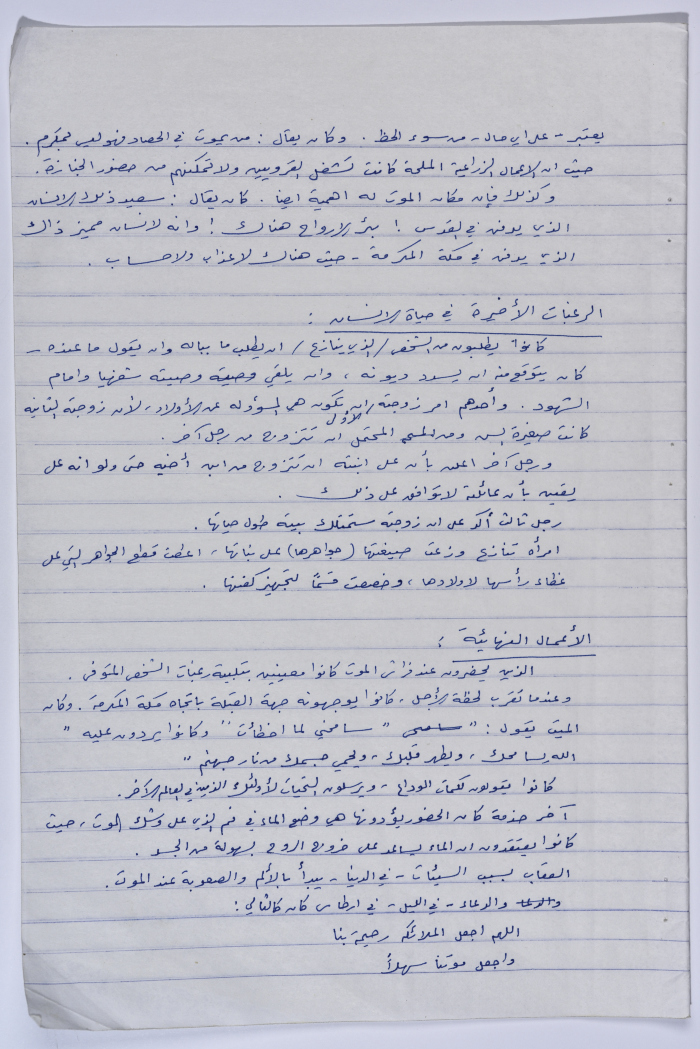 يعتبر - على اي حال - من سوء الحظ . وكان يقال : من يموت في الحصاد فهو ليس بمكرم .
حيث ان الاعمال الزراعية الملحة كانت تشغل القرويين ولا تمكنهم من حضور الجنازة .
وكذلك فإن مكان الموت له اهمية ايضا . كان يقال : سعيد ذلك الانسان
الذي يدفن في القدس ! بئر الارواح هناك ! وانه لانسان مميز ذاك
الذي يدفن في مكة المكرمة - حيث هناك لا عذاب ولا حساب .
الرغبات الأخيرة في حياة الانسان :
كانوا يطلبون من الشخص / الذي ينازع / ان يطلب ما بباله وان يقول ما عنده -
كان يتوقع منه ان يسدد ديونه ، وان يلقي وصيته شفهيا وامام
الشهود . وأحدهم امر زوجته الأولى ان تكون هي المسؤوله عن الأولاد ، لأن زوجته الثانية
كانت صغيرة السن ومن المحتمل ان تتزوج من رجل آخر .
ورجل آخر اعلن بأن على ابنته ان تتزوج من ابن أخيه حتى ولو انه على
يقين بأن عائلته لا توافق على ذلك .
رجل ثالث أكد على ان زوجته ستمتلك بيته طول حياتها .
امرأة تنازع وزعت صيغتها (جواهرها) على بناتها ، اعطت قطع الجواهر التي على
غطاء رأسها لاولادها ، وخصصت قسمًا لتجهيز كفنها .
الأعمال النهائية :
الذين يحضرون عند فراش الموت كانوا معنيين بتلبية رغبات الشخص المتوفى .
وعندما تقرب لحظة الأجل ، كانوا يوجهونه جهة القبلة باتجاه مكة المكرمة . وكان
الميت يقول : " سامحني لما اخطأت " وكانوا يردون عليه "
الله يسامحك ، ويطهر قلبك ، ويحمي جسمك من نار جهنم "
كانوا يقولون كلمات الوداع - ويرسلون التحيات لأولئك الذين في العالم الآخر .
آخر خدمة كان الحضور يؤدونها هي وضع الماء في فم الذي على وشك الموت ، حيث
كانوا يعتقدون ان الماء يساعد على خروج الروح بسهولة من الجسد .
العقاب بسبب السيئات - في الدنيا - يبدأ بالألم والصعوبة عند الموت .
والدعاء - في الليل - في ارطاس كان كالتالي :
اللهم اجعل الملائكة رحيمة بنا
واجعل موتنا سهلاً